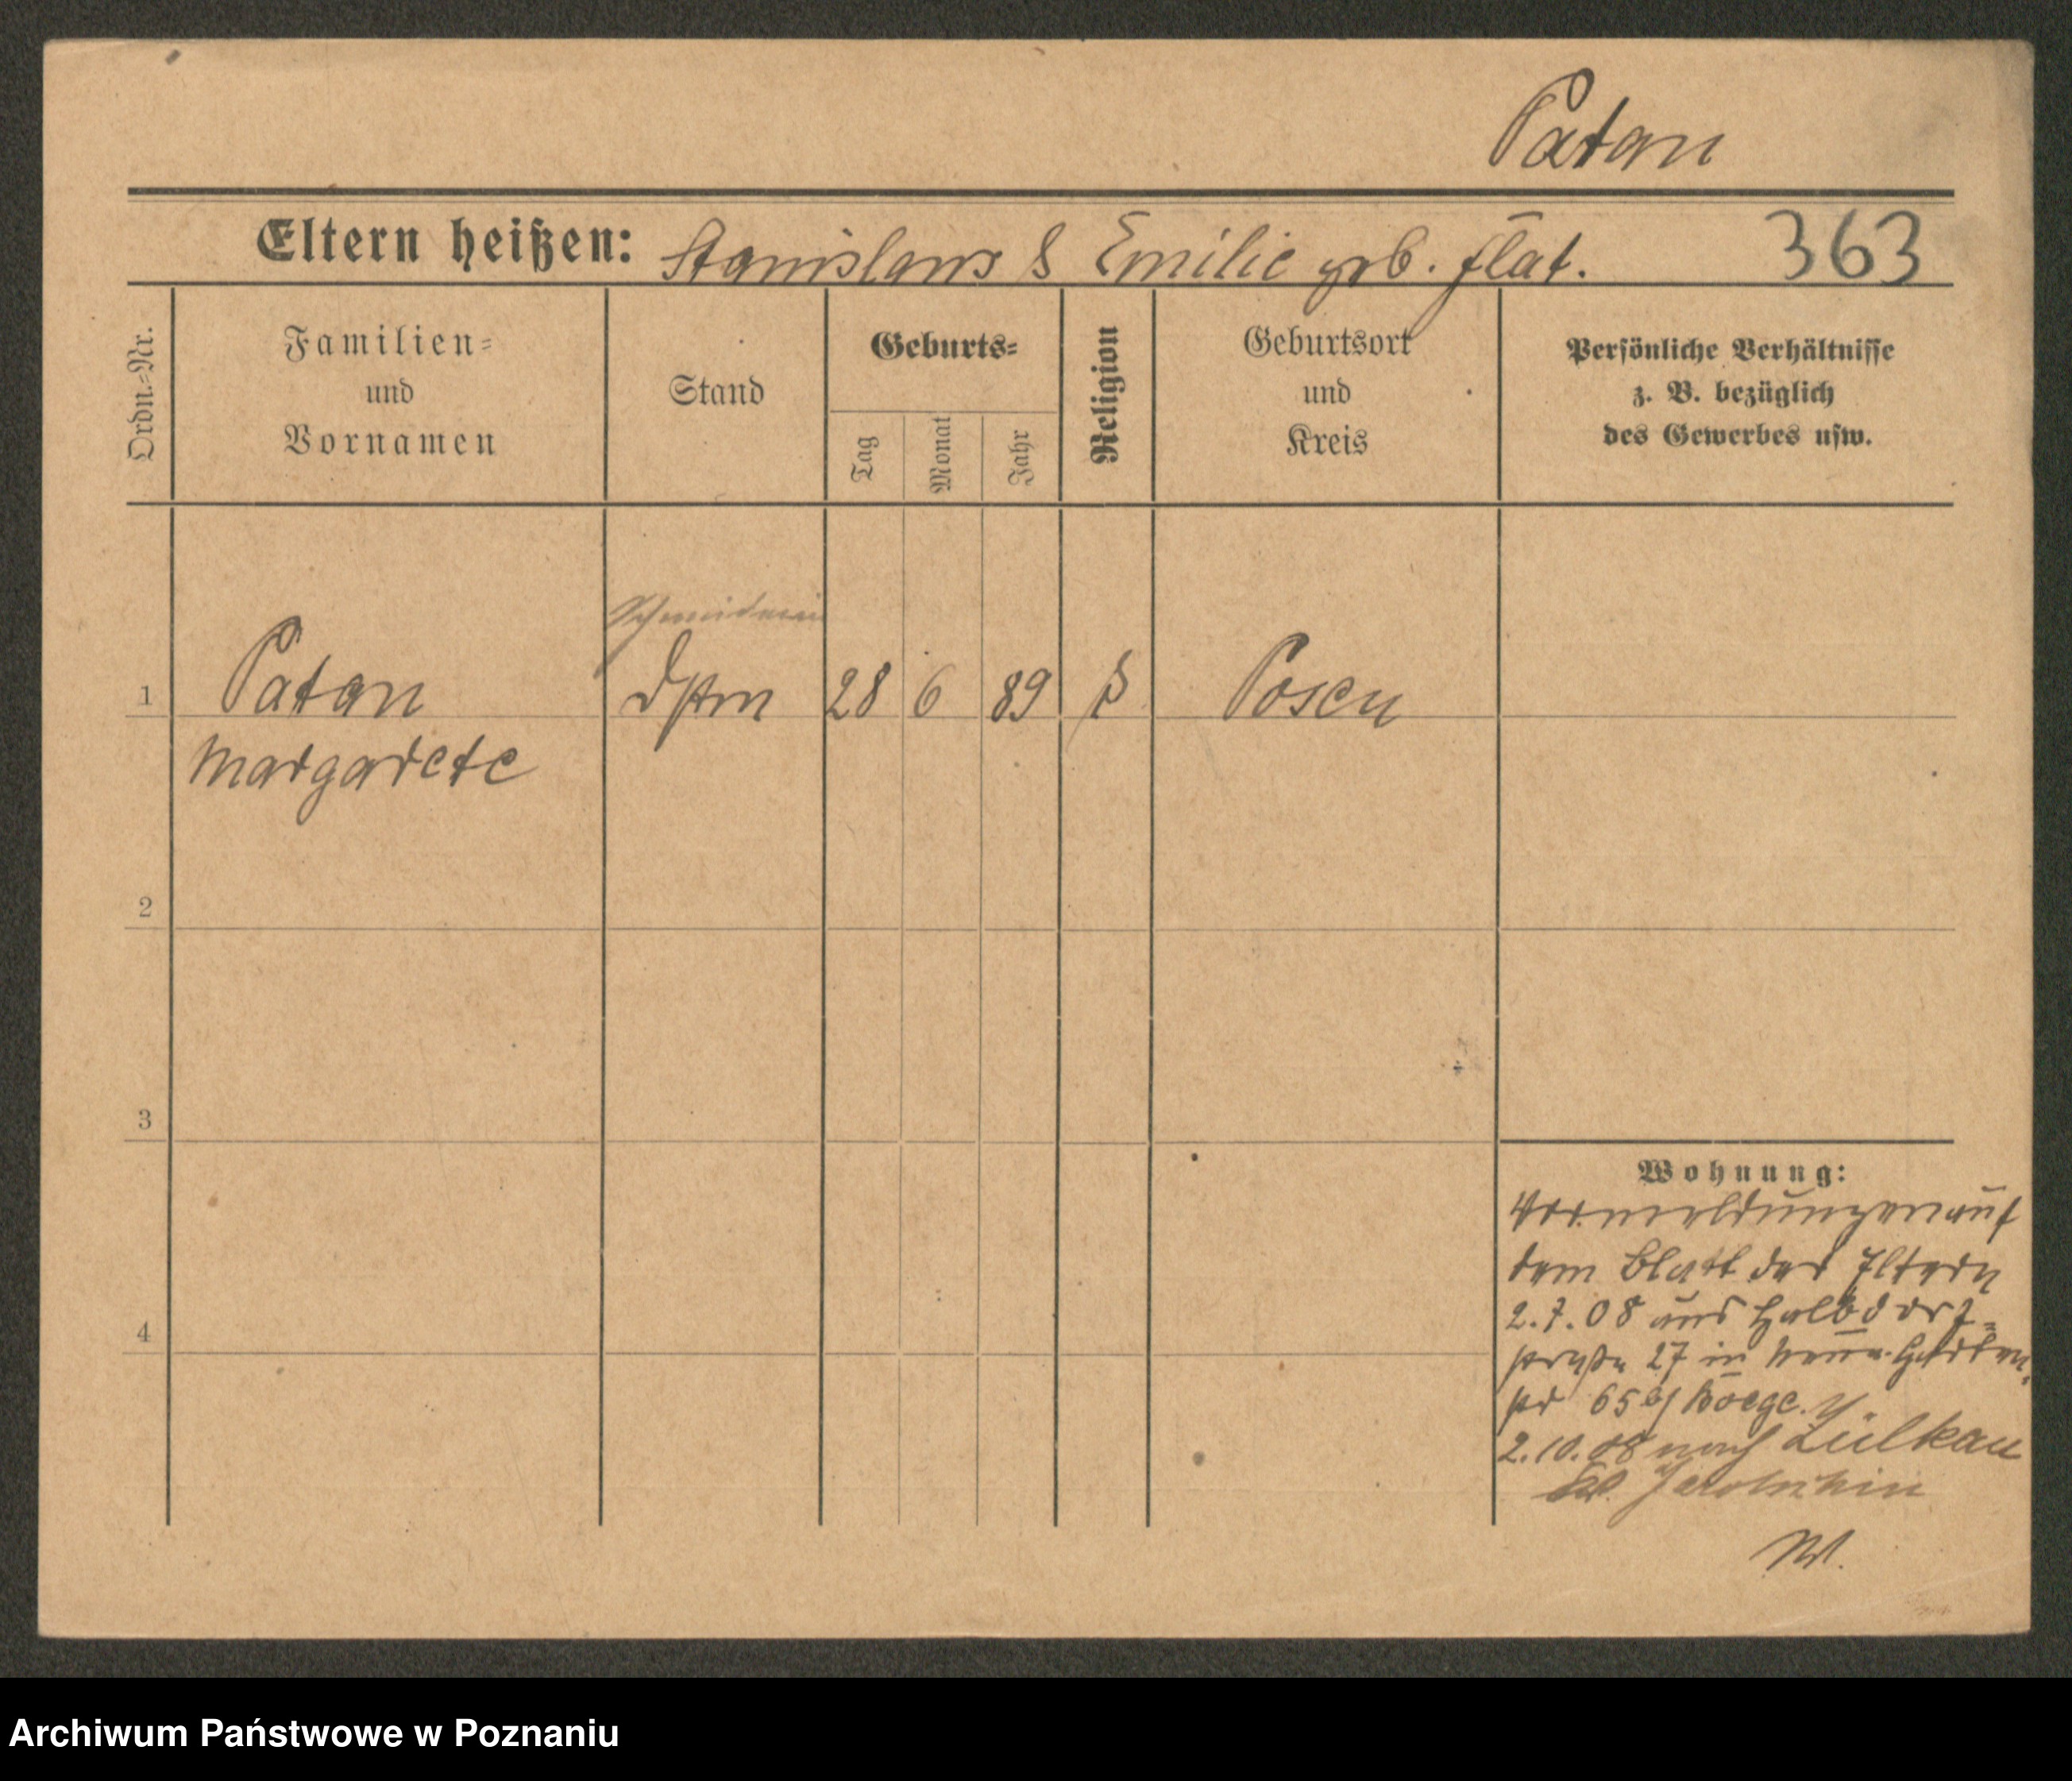 Patan
Eltern heißen: Stanislaus & Emilie geb. flat.
363
Ordn.-Nr.
Familien-
und
Vornamen
Stand
Geburts-
Tag
Monat
Jahr
Religion
Geburtsort
und
Kreis
Persönliche Verhältnisse
z. B. bezüglich
des Gewerbes usw.
1
Patan
Margarete
28 6 89
Posen
2
3
4
Wohnung:
Vormeldungen auf
dem Blatt der Eltern
2.7.08 aus Halbdorf-
straße 27 in Garten
str 65
2.10.08 nach
W.
Archiwum Państwowe w Poznaniu